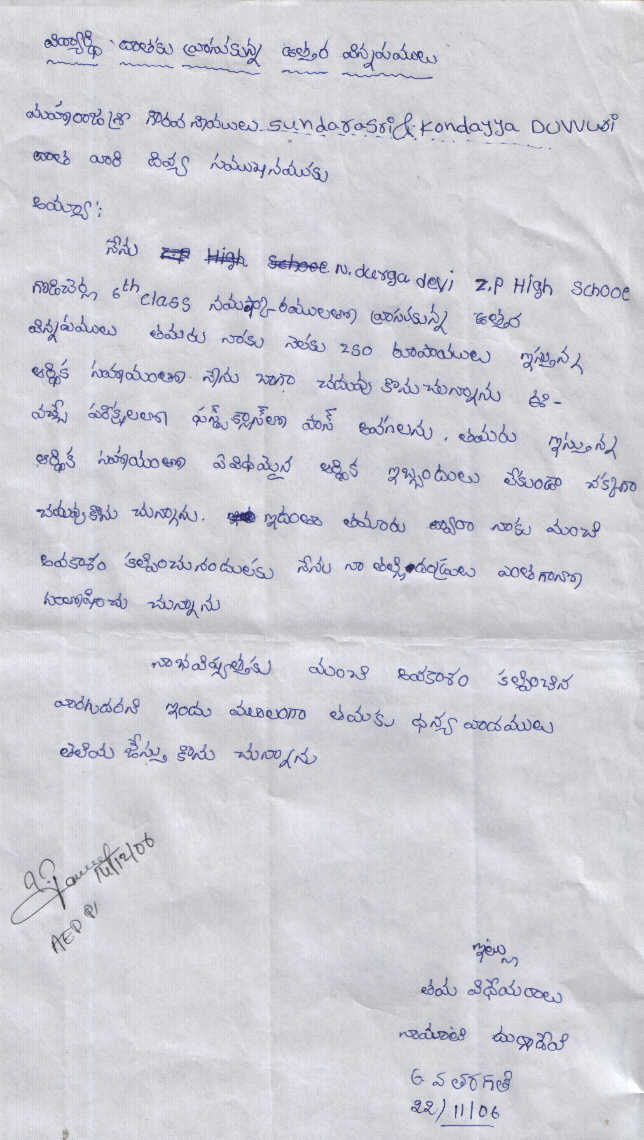 విద్యార్థి దాతకు వ్రాసుకున్న ఉత్తర విన్నపములు
మహారాజశ్రీ గౌరవనీయులు sundarasri & Kondayya DUVVURI
దాత వారి దివ్య సముఖమునకు
అయ్యా:
నేను N. durga devi Z.P High School
6th class నమస్కారములతో వ్రాసుకున్న ఉత్తర
విన్నపములు తమరు నాకు నెలకు 250 రూపాయులు ఇస్తున్న
ఆర్థిక సహాయంతో నేను బాగా చదువు కొనుచున్నాను ఈ-
పరీక్షలలో ఫస్ట్ క్లాస్ లో పాస్ అవగలను. తమరు ఇస్తున్న
ఆర్థిక సహాయంతో ఏవిధమైన ఆర్థిక ఇబ్బందులు లేకుండా చక్కగా
చదువుకొను చున్నాను. ఇదంతా తమారు ద్వారా నాకు మంచి
అవకాశం కల్పించునందులకు నేను నా తల్లి దండ్రులు ఎంతగానో
సంతోషించు చున్నాను
నాభవిష్యత్తుకు మంచి అవకాశం కల్పించిన
ఇందు మూలంగా తమకు ధన్య వాదములు
తెలియ జేస్తు కొను చున్నాను
14/12/06
ఇట్లు
తమ విధేయరాలు
దుర్గాదేవి
6 వ తరగతి
22/11/06